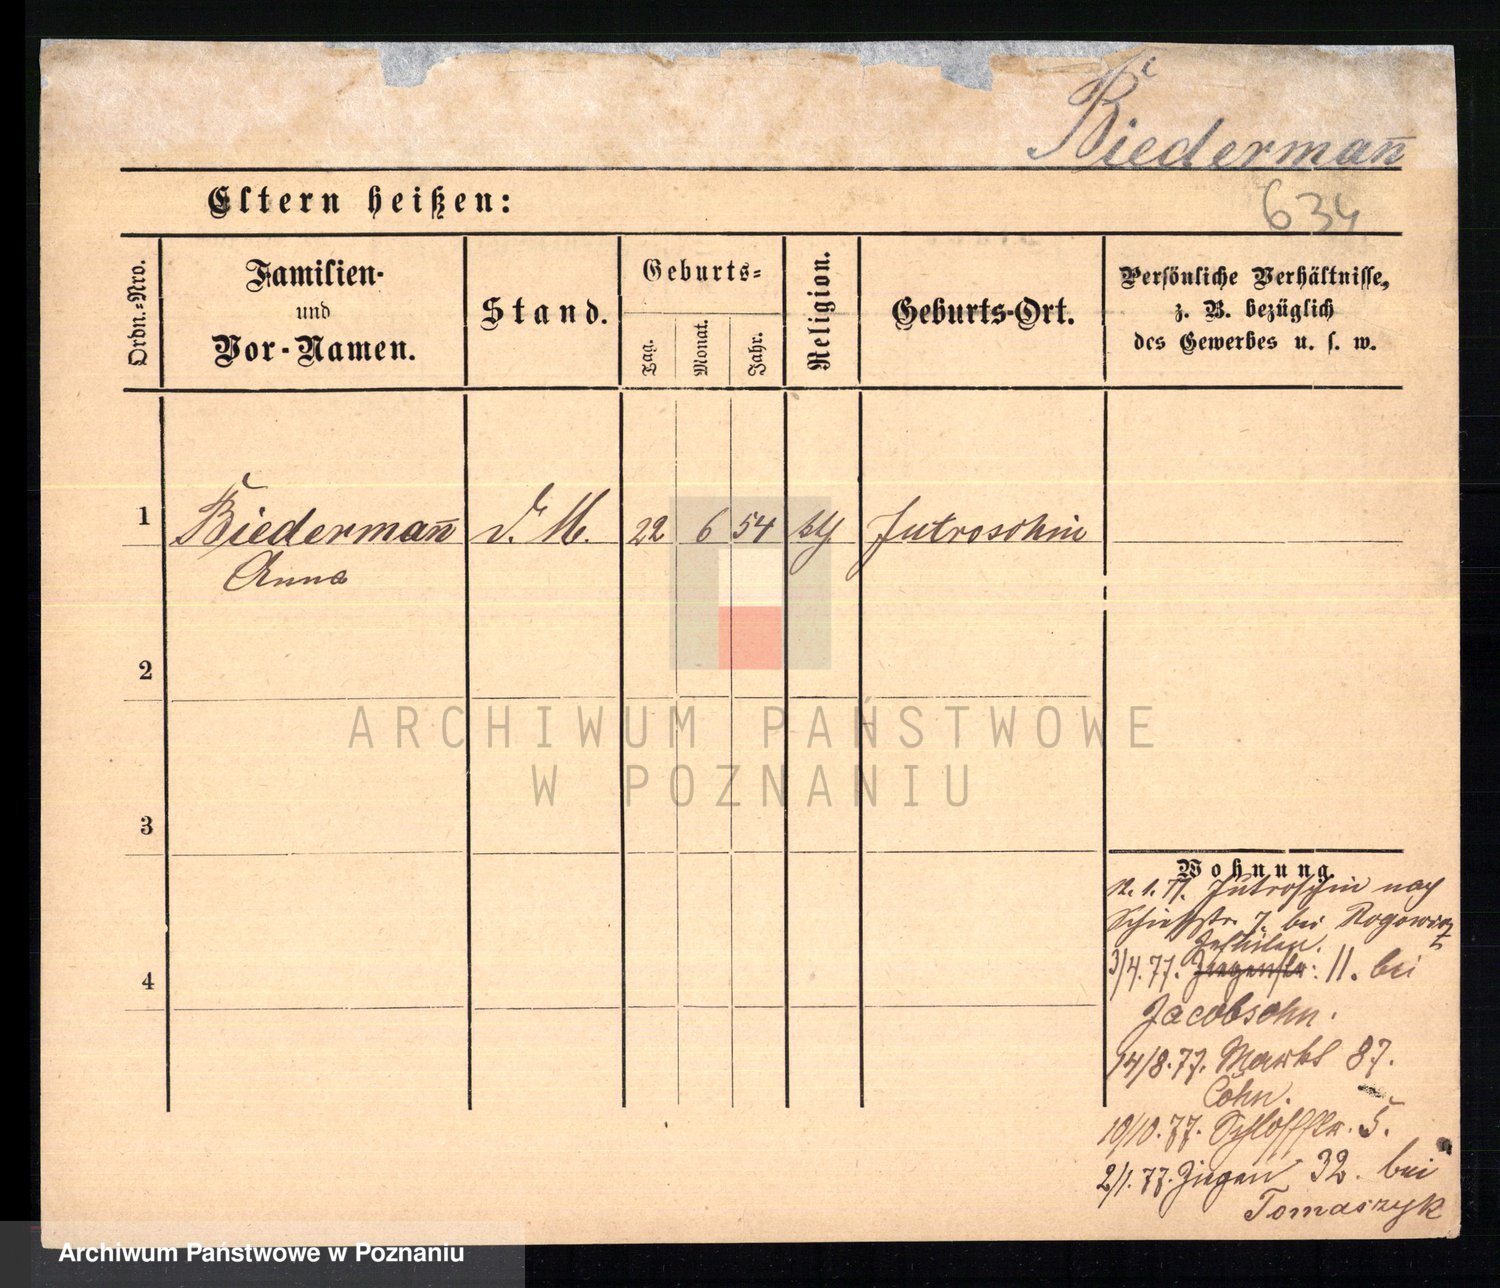 Biederman̄
634
Eltern heißen:
Ordn.-Nro.
Familien-
und
Vor-Namen.
Stand.
Geburts-
Tag.
Monat.
Jahr.
Religion.
Geburts-Ort.
Persönliche Verhältnisse,
z. B. bezüglich
des Gewerbes u. s. w.
1
Biederman̄
Anna
d. M.
22
6
54
Jutroschin
2
3
4
Wohnung.
12. 1. 77. Jutroschin nach
Schießstr. 7. bei Rogowicz
3/4.77. 11. bei
Jacobsohn.
14/8.77. Markt 87.
Cohn.
10/10.77. Schloßstr. 5.
2/1.77. Ziegen 32. bei
Tomaszyk
ARCHIWUM PAŃSTWOWE
W POZNANIU
Archiwum Państwowe w Poznaniu